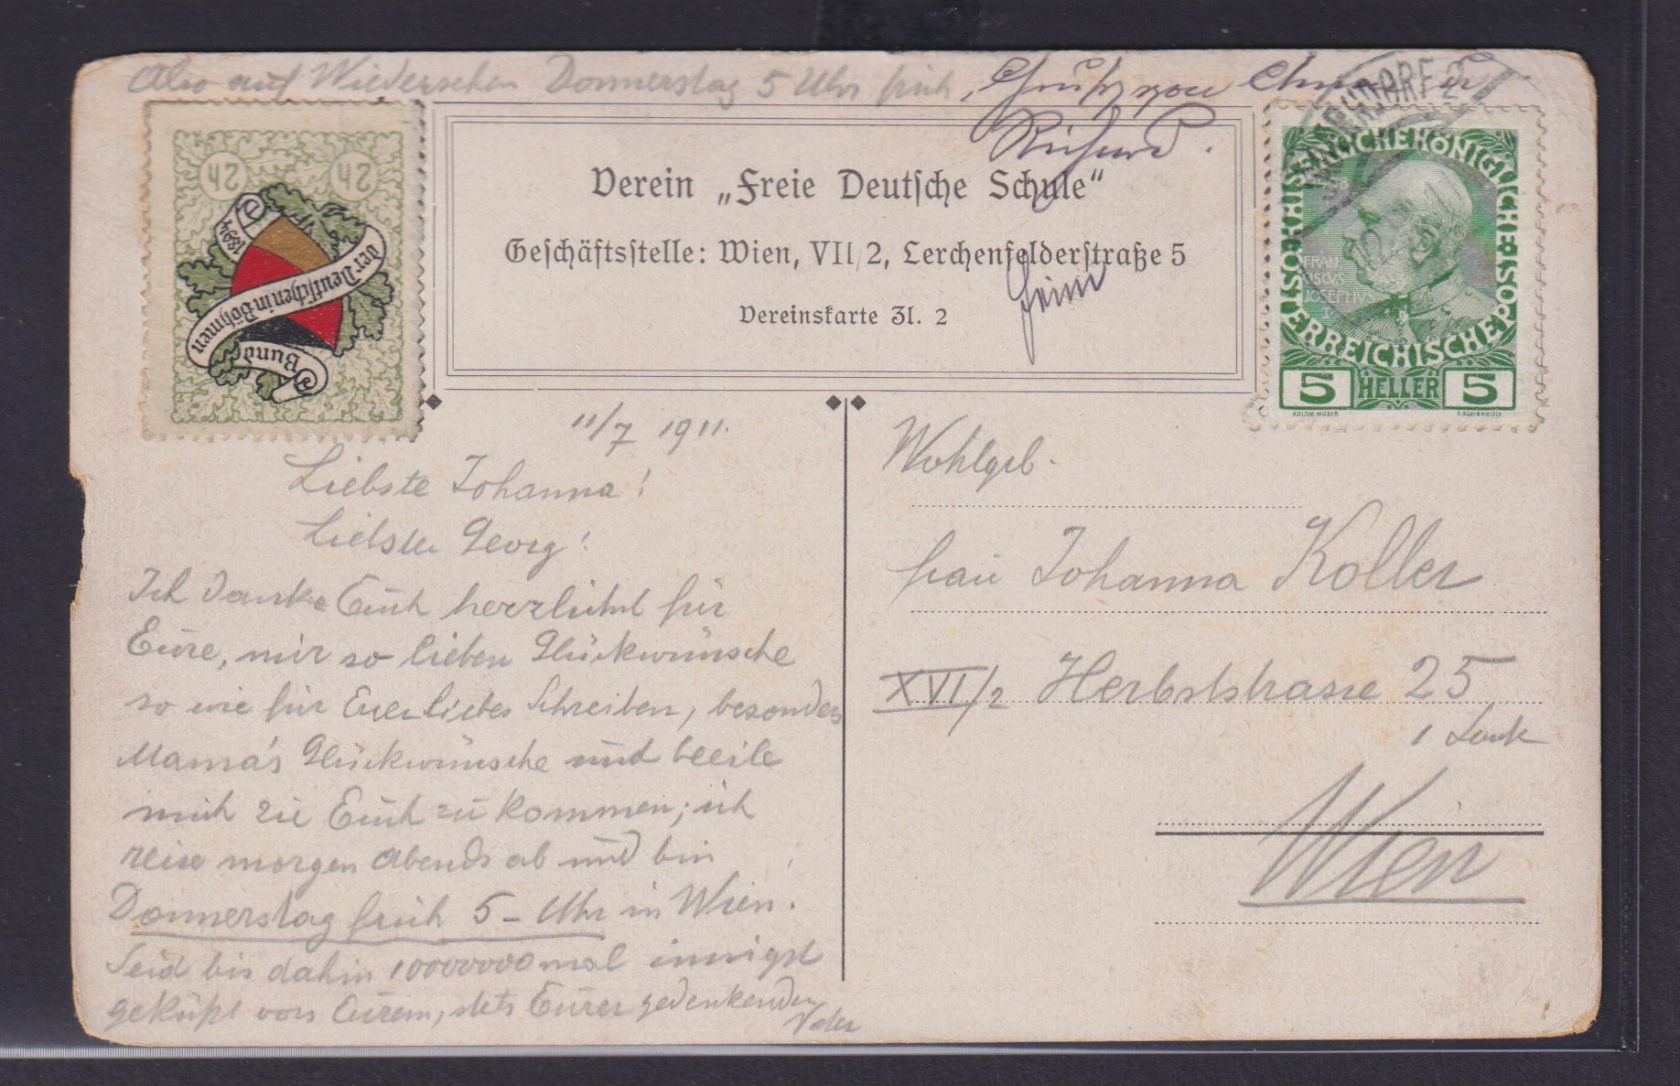 Also auf Wiedersehen Donnerstag 5 Uhr früh,
Gruß von
Richard.
Heim
Verein „Freie Deutsche Schule“
Geschäftsstelle: Wien, VII/2, Lerchenfelderstraße 5
Vereinskarte Zl. 2
24 24
1894
Bund
der Deutschen in Böhmen
KAISERLICHE KÖNIGLICHE ÖSTERREICHISCHE POST
FRANCISCUS JOSEPHUS I
5 HELLER 5
11/7 1911.
Liebste Johanna!
Liebster Georg!
Ich danke Euch herzlichst für
Eure, mir so lieben Glückwünsche
so wie für Euer liebes Schreiben, besonders
Mama's Glückwünsche und beeile
mich zu Euch zu kommen; ich
reise morgen Abends ab und bin
Donnerstag früh 5 - Uhr in Wien.
Seid bis dahin 10000000 mal innigst
geküßt von Eurem, stets Eurer gedenkenden
Wohlgeb.
Frau Johanna Koller
XVI/2 Herbststrasse 25
1 Stock
Wien